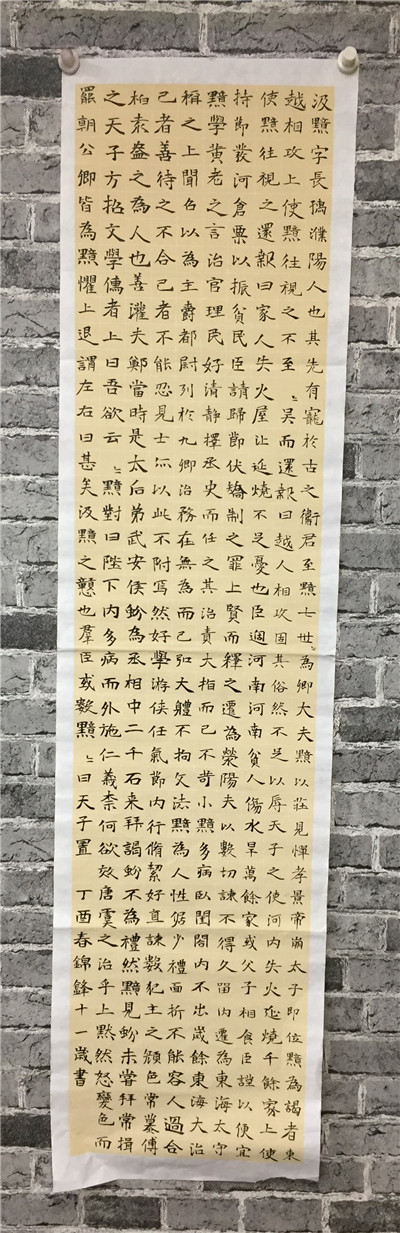 汲黯字長孺濮陽人也其先有寵於古之衛君至黯七世〻為卿大夫黯以莊見憚孝景帝崩太子即位黯為謁者東
越相攻上使黯往視之不至〻吳而還報曰越人相攻固其俗然不足以辱天子之使河內失火延燒千餘家上使
使黯往視之還報曰家人失火屋比延燒不足憂也臣過河南河南貧人傷水旱萬餘家或父子相食臣謹以便宜
持節發河倉粟以振貧民臣請歸節伏矯制之罪上賢而釋之遷為滎陽夫以數切諫不得久留內遷為東海太守
黯學黄老之言治官理民好清靜擇丞史而任之其治責大指而已不苛小黯多病臥閨閤內不出歲餘東海大治
稱之上聞召以為主爵都尉列於九卿治務在無為而已弘大體不拘文法黯為人性倨少禮面折不能容人過合
己者善待之不合己者不能忍見士亦以此不附焉然好學游俠任氣節內行脩絜好直諫數犯主之顏色常慕傅
柏袁盎之為人也善灌夫鄭當時是太后弟武安侯蚡為丞相中二千石来拜謁蚡不為禮然黯見蚡未嘗拜常揖
之天子方招文學儒者上曰吾欲云〻黯對曰陛下內多病而外施仁義柰何欲效唐虞之治乎上默然怒變色而
罷朝公卿皆為黯懼上退謂左右曰甚矣汲黯之戇也羣臣或數黯〻曰天子置 丁酉春錦鋒十一歲書